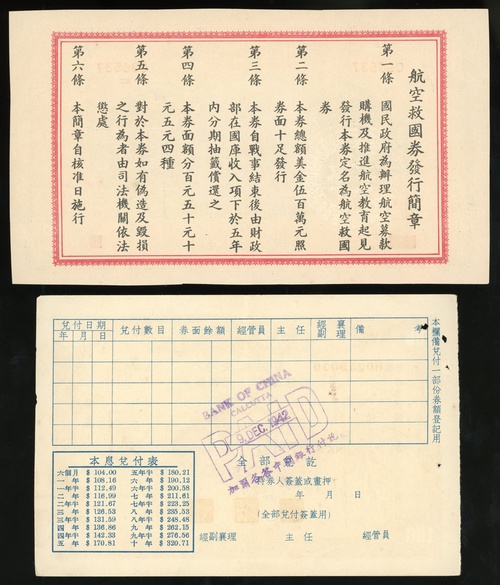 航空救國券發行簡章
第一條　國民政府為辦理航空募款
購機及推進航空教育起見
發行本券定名為航空救國
券
第二條　本券總額美金伍百萬元照
券面十足發行
第三條　本券自戰事結束後由財政
部在國庫收入項下於五年
內分期抽籤償還之
第四條　本券面額分百元五十元十
元五元四種
第五條　對於本券如有偽造及毀損
之行為者由司法機關依法
懲處
第六條　本簡章自核准日施行
本欄備兌付一部份券額登記用
兌付日期　兌付數目　券面餘額　經管員　主任　經副襄理　備考
年　月　日
BANK OF CHINA
CALCUTTA
PAID
9 DEC. 1942
本息兌付表
六個月 $ 104.00　五年半 $ 180.21
一年 $ 108.16　六年 $ 190.12
一年半 $ 112.49　六年半 $ 200.58
二年 $ 116.99　七年 $ 211.61
二年半 $ 121.67　七年半 $ 223.25
三年 $ 126.53　八年 $ 235.53
三年半 $ 131.59　八年半 $ 248.48
四年 $ 136.86　九年 $ 262.15
四年半 $ 142.33　九年半 $ 276.56
五年 $ 170.81　十年 $ 320.71
全部兌訖
持券人簽蓋或畫押:
年　月　日
(全部兌付簽蓋用)
經副襄理　主任　經管員